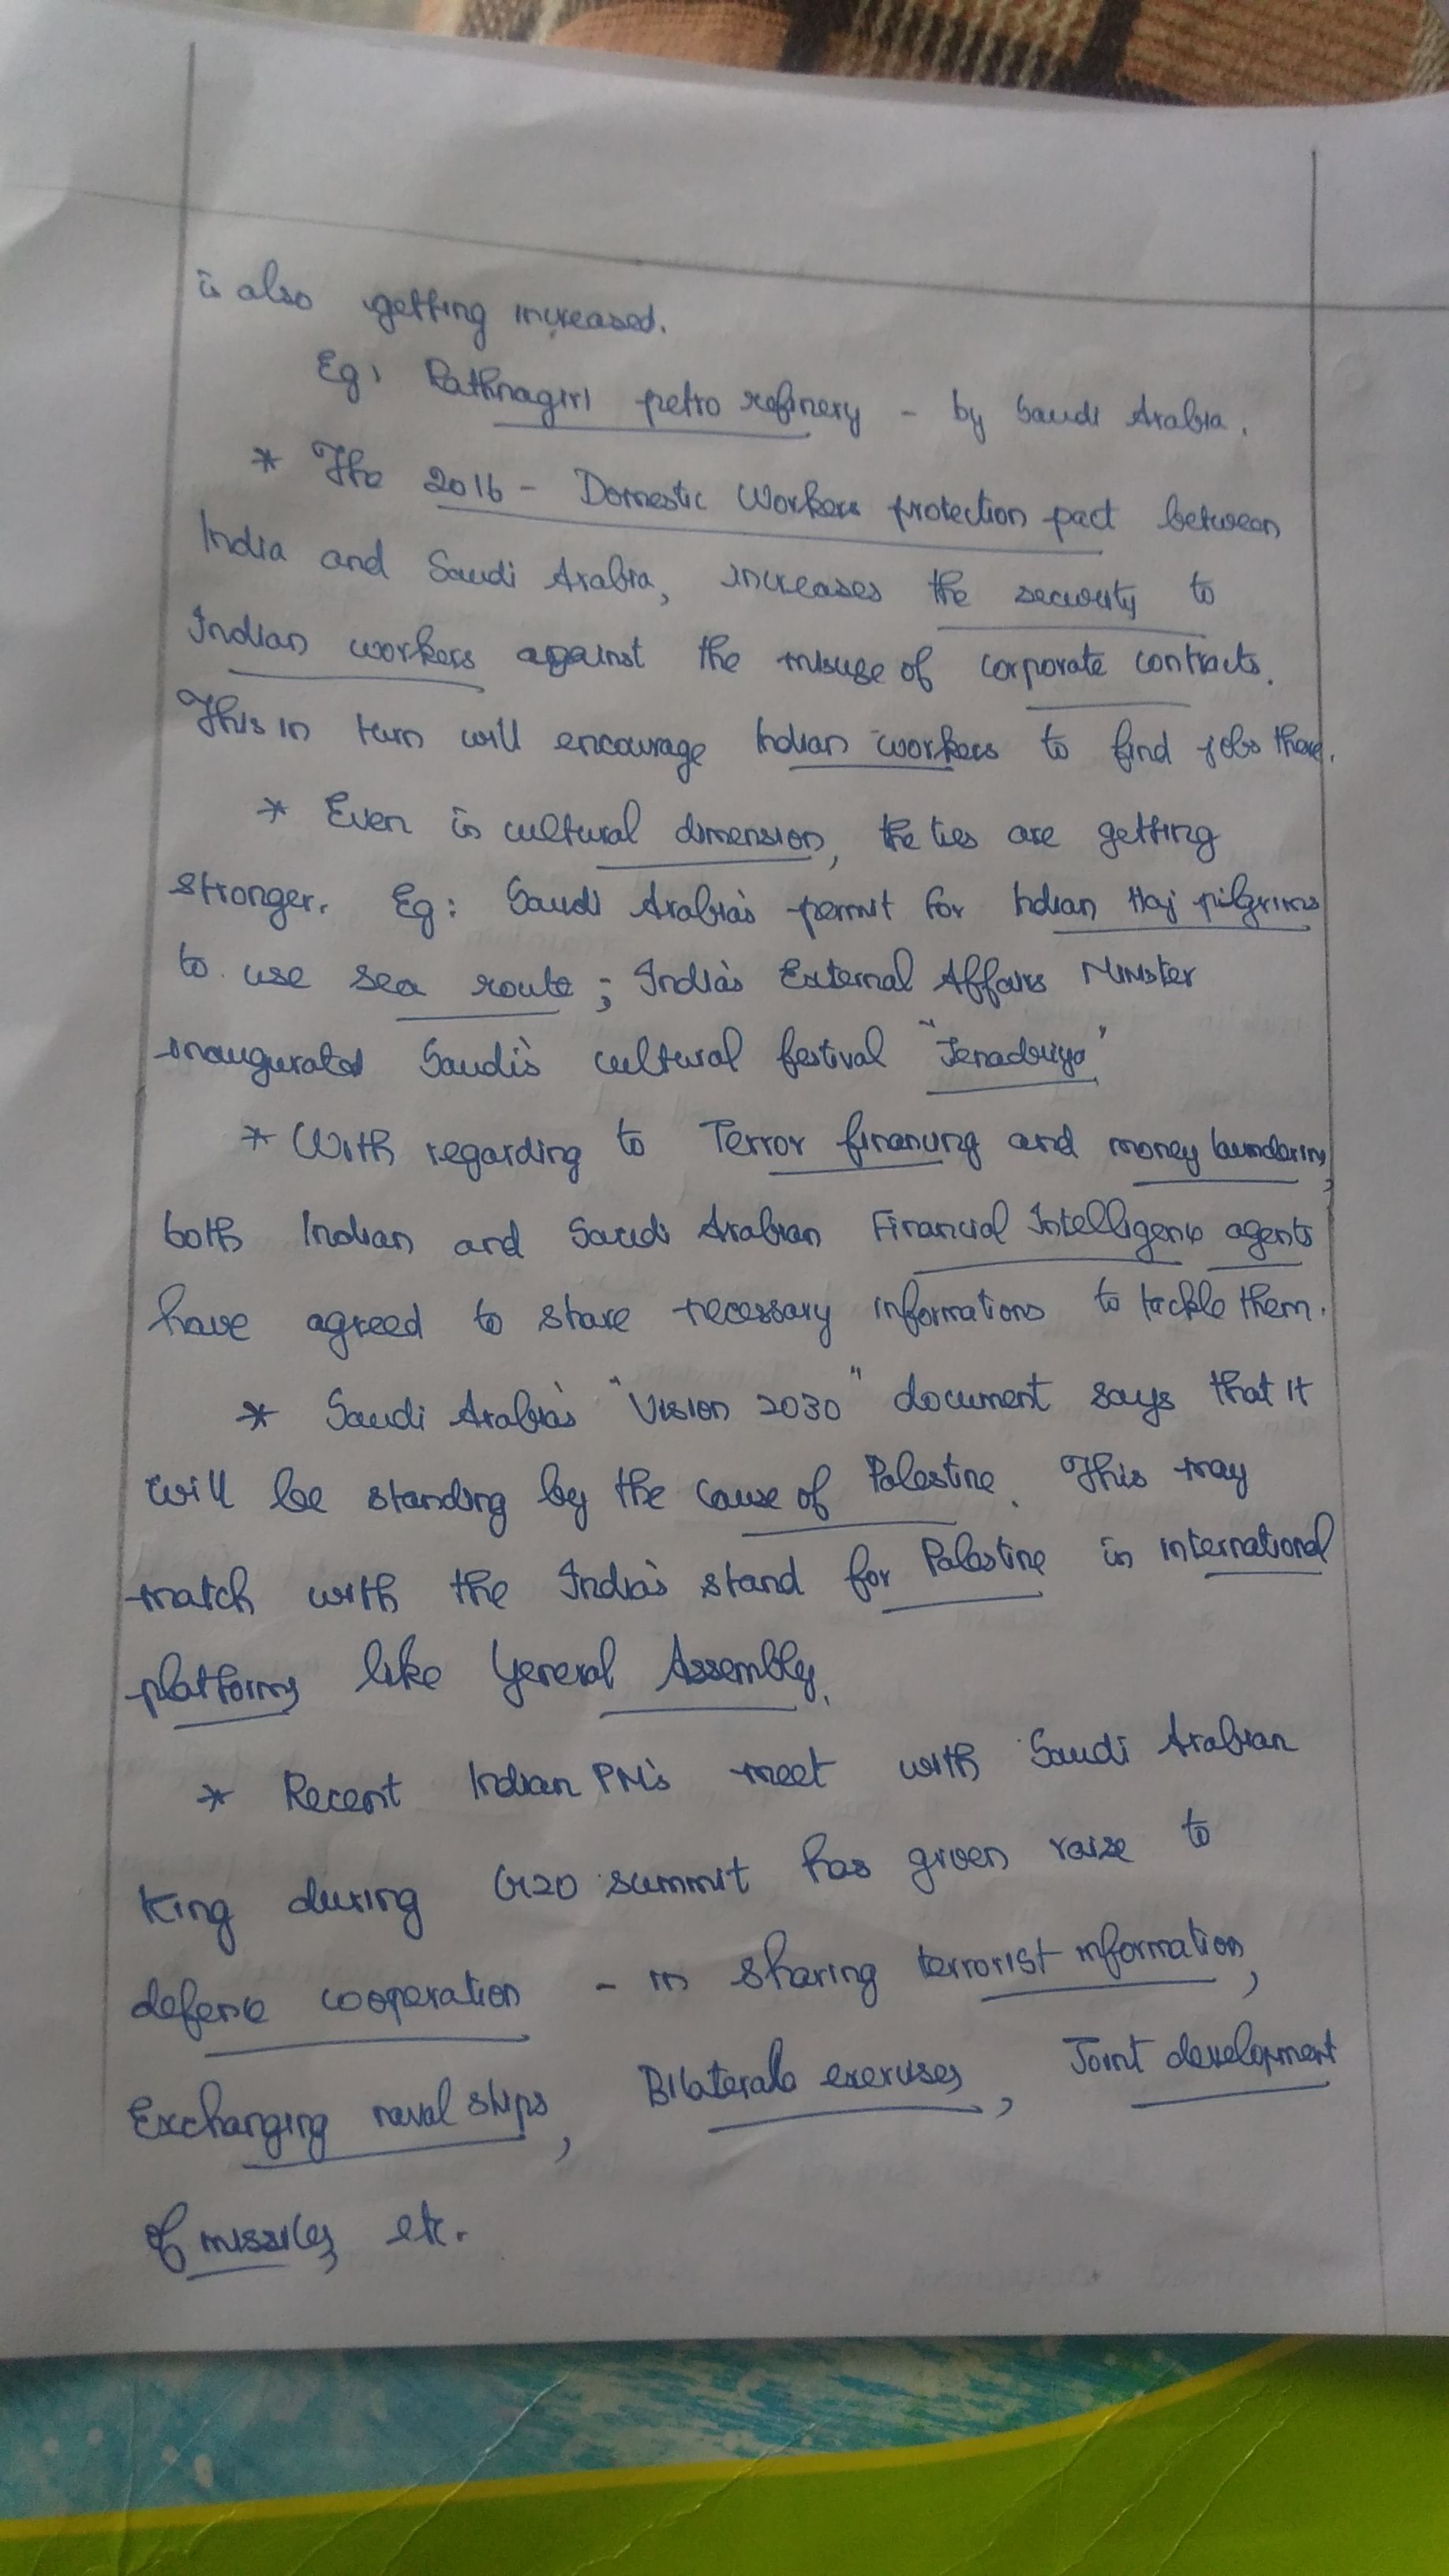 is also getting increased.
Eg, Rathnagiri petro refinery - by Saudi Arabia.
* The 2016 - Domestic Workers protection pact between
India and Saudi Arabia, increases the security to
Indian workers against the misuse of corporate contracts.
This in turn will encourage Indian workers to find jobs there.
* Even in cultural dimension, the ties are getting
stronger. Eg: Saudi Arabia's permit for Indian Haj pilgrims
to use sea route; India's External Affairs Minister
inaugurated Saudi's cultural festival "Jenadriya"
* With regarding to Terror financing and money laundering,
both Indian and Saudi Arabian Financial Intelligence agents
have agreed to share necessary informations to tackle them.
* Saudi Arabia's "Vision 2030" document says that it
will be standing by the cause of Palestine. This may
match with the India's stand for Palestine in international
platforms like General Assembly.
* Recent Indian PM's meet with Saudi Arabian
King during G20 summit has given raise to
defence cooperation - in sharing terrorist information,
Exchanging naval ships, Bilaterals exercises, Joint development
of missiles, etc.